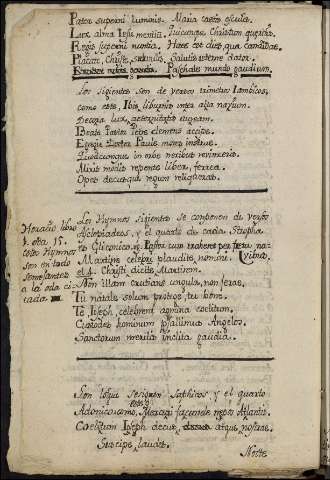 Pater superni luminis. Maria castis osculis.
Lux alma Jesu mentium. Quicunque Christum quæritis.
Regis superni nuntia. Hæc est dies qua candidæ.
Placare, Christe, servulis. Salutis æternæ dator.
Paschale mundo gaudium.
Los siguientes son de versos trimetros Iambicos,
como este, Ibis liburnis inter alta navium.
Decora lux, æternitatis auream.
Beate Pastor Petre clemens accipe.
Egregie Doctor Paule mores instrue.
Quodcumque in orbe nexibus revinxeris.
Miris modis repente liber, ferrea.
Opes decusque regium reliqueras.
Horatio libro
1. oda 15.
estos Hymnos
son en todo
semejantes
a la oda ci
tada
Los Hymnos siguientes se componen de versos
Asclepiadeos, y el quarto de cada Stropha
es Gliconico. Pastor cum traheret per freta na-
vibus.
Martinæ celebri plaudite nomini.
el 4. Christi dicite Martirem.
Non illam crucians ungula, non feræ.
Tu natale solum protege, tu bonæ.
Te Joseph celebrent agmina cœlitum.
Custodes hominum psallimus Angelos.
Sanctorum meritis inclita gaudia.
Son los que se siguen Saphicos, y el quarto
Adonico como, Mercuri facunde nepos Atlantis.
Cœlitum Joseph decus, atque nostræ.
Suscipe laudes.
Nocte